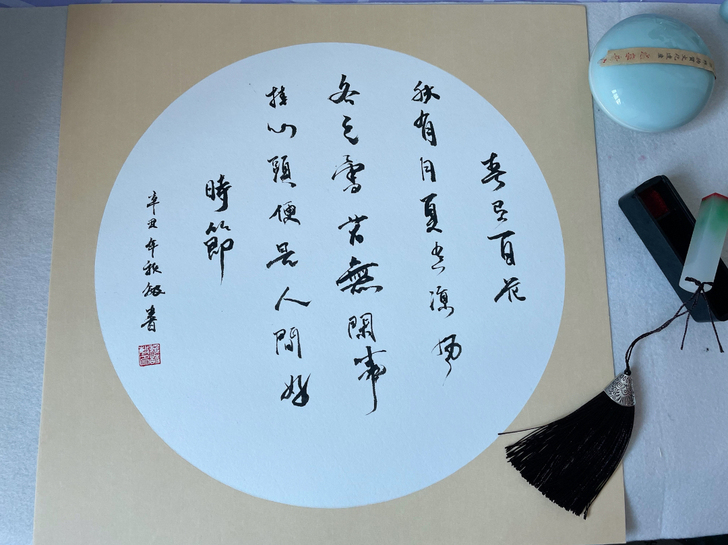 春有百花
秋有月夏有凉風
冬有雪若無閑事
挂心頭便是人間好
時節
辛丑年秋書